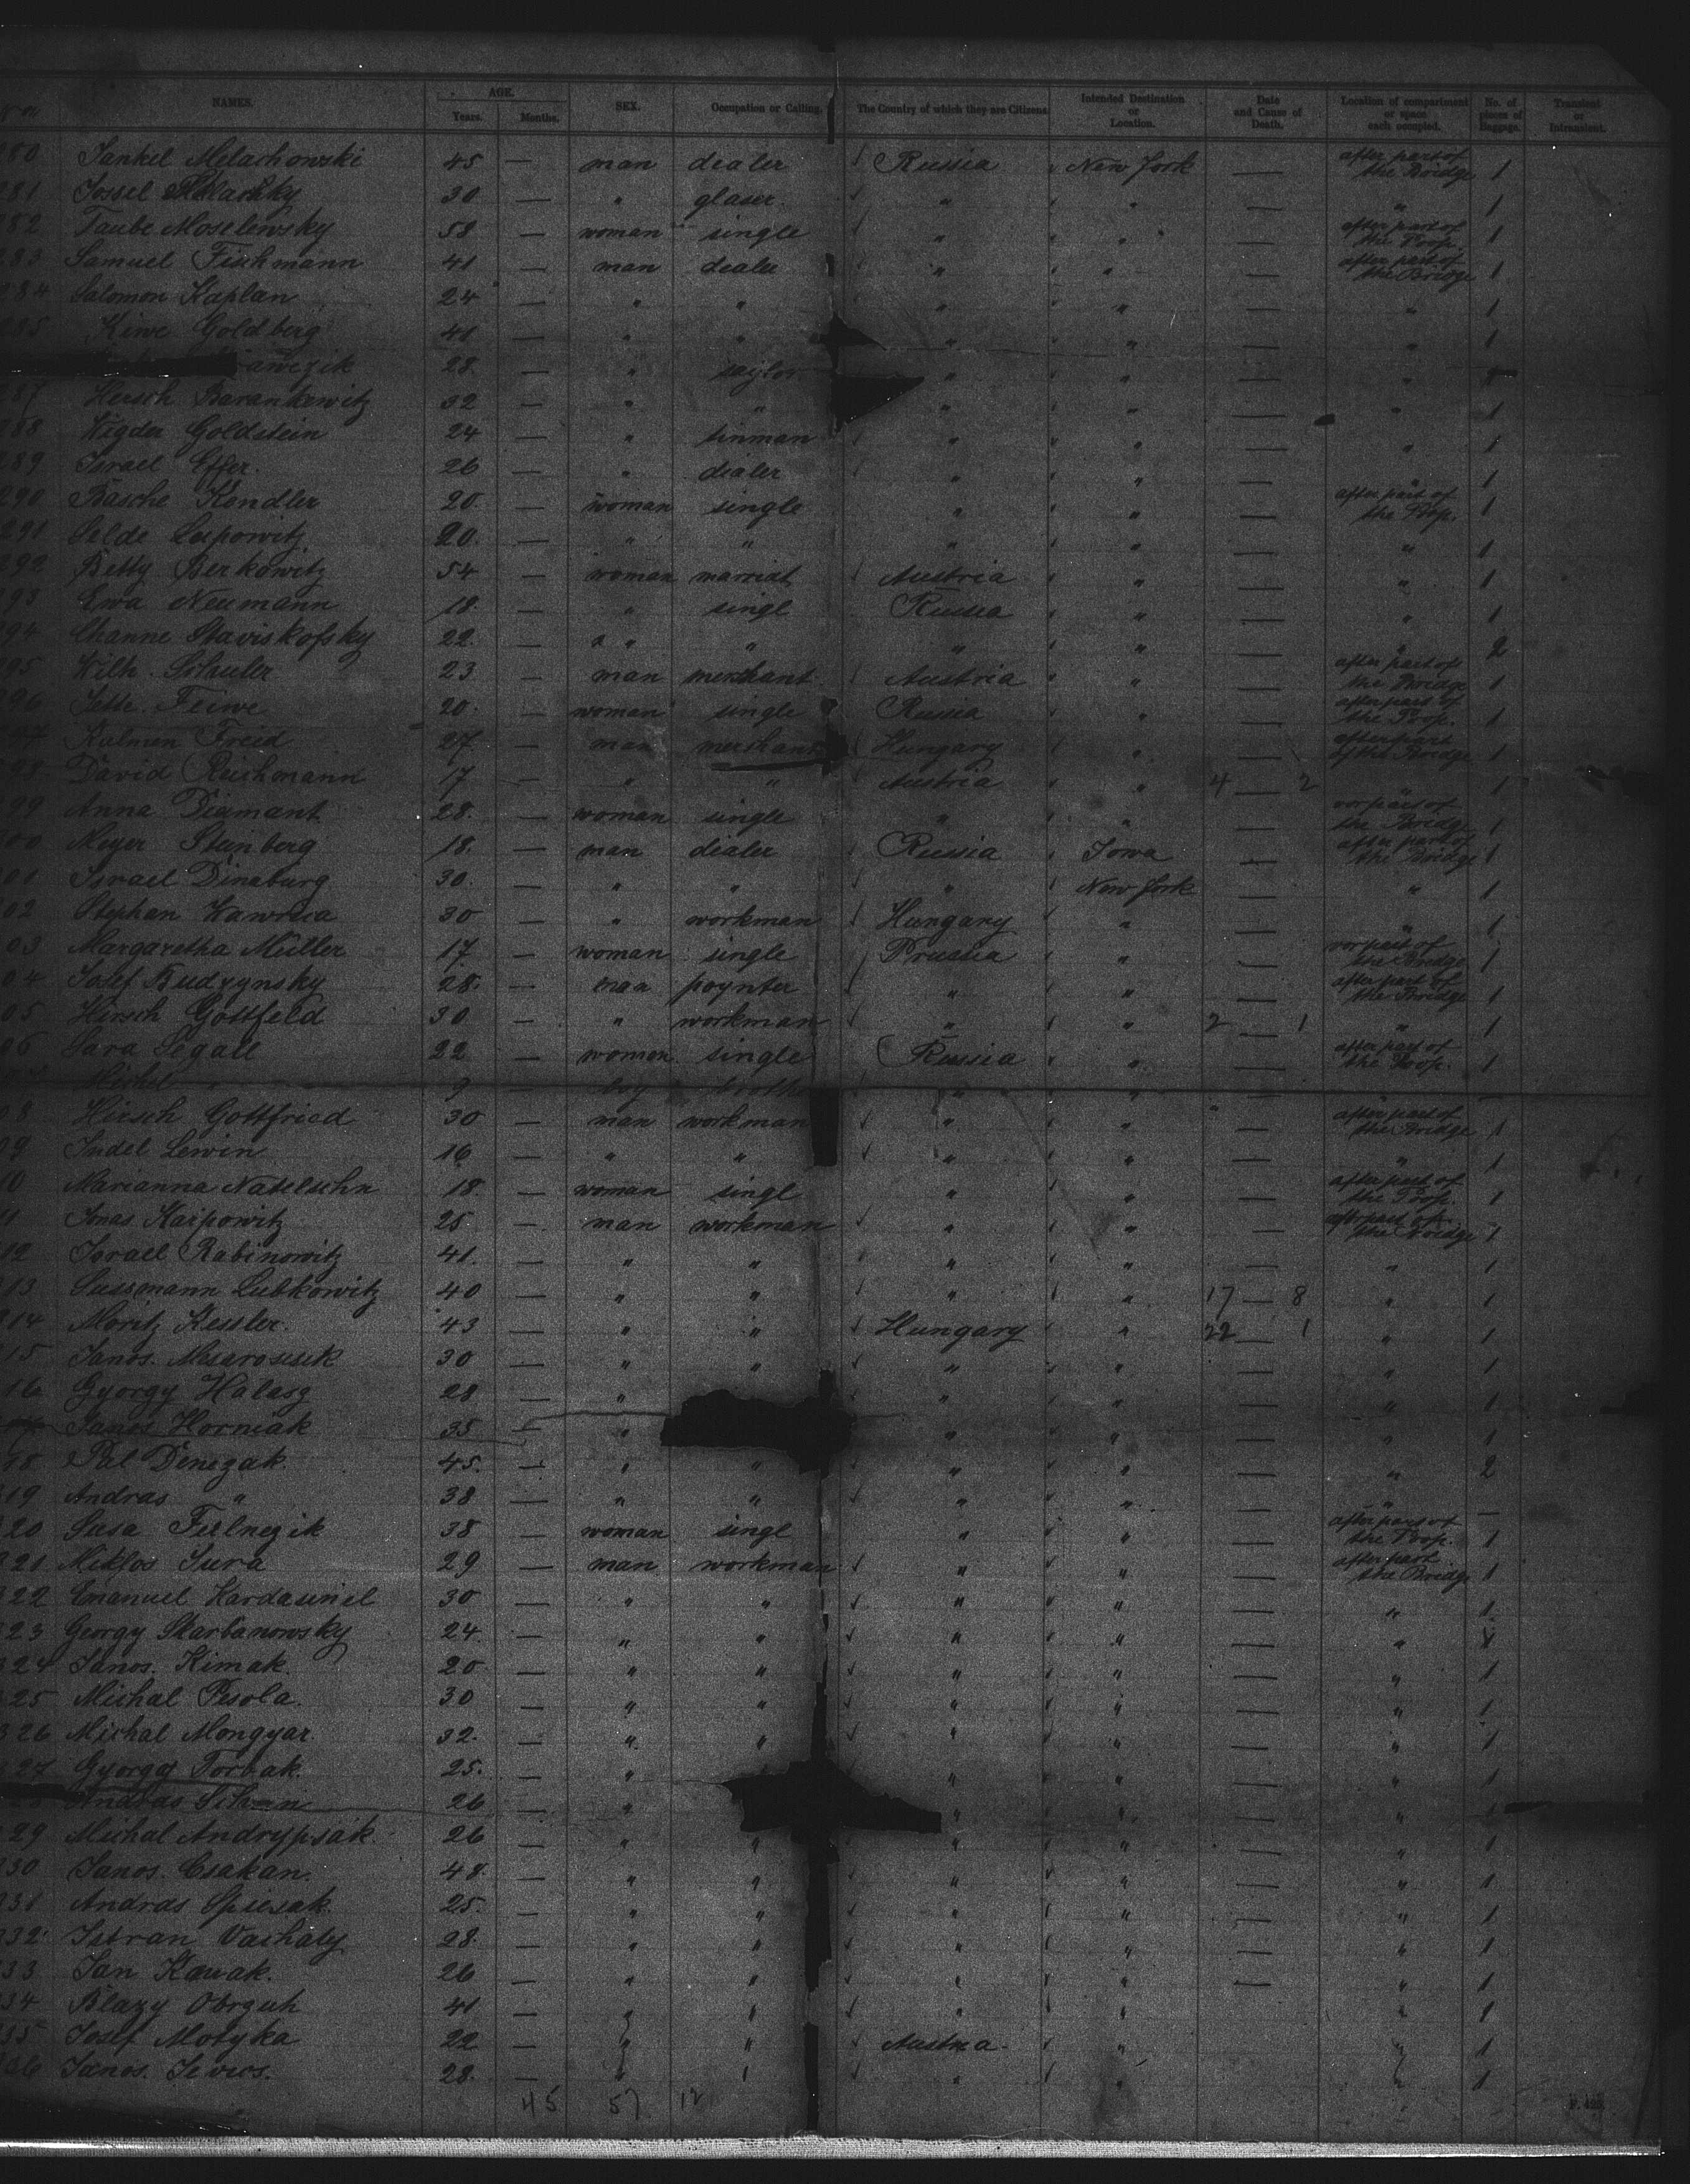 NAMES. AGE. SEX. Occupation or Calling. The Country of which they are Citizens. Intended Destination or Location. Date and Cause of Death. Location of compartment or space each occupied. No. of pieces of Baggage. Transient or Intransient.
Years. Months.
280 Jankel Melachowski 45 — man dealer Russia New York — after part of the Bridge 1
281 Jossel 30 — " glaser " " — " 1
282 Taube Moselewsky 58 — woman single " " — after part of the Poop. 1
283 Samuel Fischmann 41 — man dealer " " — after part of the Bridge 1
284 Salomon Kaplan 24 — " " " " — " 1
285 Kiwe Goldberg 41 — " " " " — " 1
28 — " saylor " " — "
287 Hersch Barankewitz 32 — " " " " — " 1
288 Wigder Goldstein 24 — " tinman " " — " 1
289 Israel Effer. 26 — " dealer " " — " 1
290 Basche Kandler 20. — woman single " " — after part of the Poop. 1
291 Selde Lupowitz 20. — " " " " — " 1
292 Betty Berkowitz 54 — woman marriat Austria " — " 1
293 Ewa Neumann 18. — " singl Russia " — " 1
294 Channe Staviskofsky 22. — " " " " — " 2
295 Wilh. Schuler 23 — man merchant Austria " — after part of the Bridge 1
296 Jette Feiwe 20. — woman single Russia " — after part of the Poop. 1
297 Kalmen Freid 27. — man merchant Hungary " — after part of the Bridge 1
298 David Reichmann 17 — " " Austria " 4 — 2 " 1
299 Anna Diamant 28. — woman single " " — vor part of the Bridge 1
300 Meyer Steinberg 18. — man dealer Russia Iowa — after part of the Bridge 1
01 Israel Dinaburg 30. — " " " New York — " 1
02 Stephan Hawrica 30 — " workman Hungary " — " 1
03 Margaretha Müller 17 — woman single Prussia " — vor part of the Bridge 1
04 Josef Budzynsky 28. — man poynter " " — after part of the Bridge 1
05 Hirsch Gottfeld 30 — " workman " " 2 — 1 " 1
06 Sara Segall 22 — woman single Russia " — after part of the Poop. 1
07 Michel " 9 — boy " " — " —
08 Hirsch Gottfried 30 — man workman " " — after part of the Bridge 1
09 Judel Lewin 16 — " " " " — " 1
10 Marianna Natelsohn 18. — woman singl " " — after part of the Poop. 1
11 Jonas Karpowitz 25. — man workman " " — after part of the Bridge 1
12 Israel Rabinowitz 41. — " " " " — " 1
313 Sussmann Lubkowitz 40 — " " " " 17 — 8 " 1
314 Moritz Kessler. 43 — " " Hungary " 22 — 1 " 1
315 Janos. 30 — " " " " — " 1
316 Gyorgy Halasz 28 — " " " — " 1
Janos Horniak 35 — " " " — " 1
318 Pal Dinezak. 45. — " " " " — " 2
319 Andras " 38 — " " " " — " —
320 Susa Fulnezik 38 — woman singl " " — after part of the Poop. 1
321. Miklos Jura 29 — man workman " " — after part the Bridge 1
322 Emanuel 30 — " " " " — " 1
323 Georgy Skarbanowsky 24. — " " " " — " 1
324 Janos. Kimak. 20 — " " " " — " 1
325 Michal Pesola. 30 — " " " " — " 1
326 Michal Mongyar. 32. — " " " " — " 1
327 Gyorgy Torbak. 25. — " " " — " 1
328 Andras 26 — " " " — "
329 Michal Andrypsak 26 — " " " " — " 1
330 Janos. Csakan. 48. — " " " " — " 1
331 Andras Spiesak. 25. — " " " " — " 1
332. Istvan Vachaly 28. — " " " " — " 1
333 Jan Kawak. 26 — " " " " — " 1
334 Blazy Obrzuh 41 — " " " " " 1
335 Josef Motyka 22 — " " Austria. " " 1
336 Janos. 28. — " " " " " 1
45 57 12